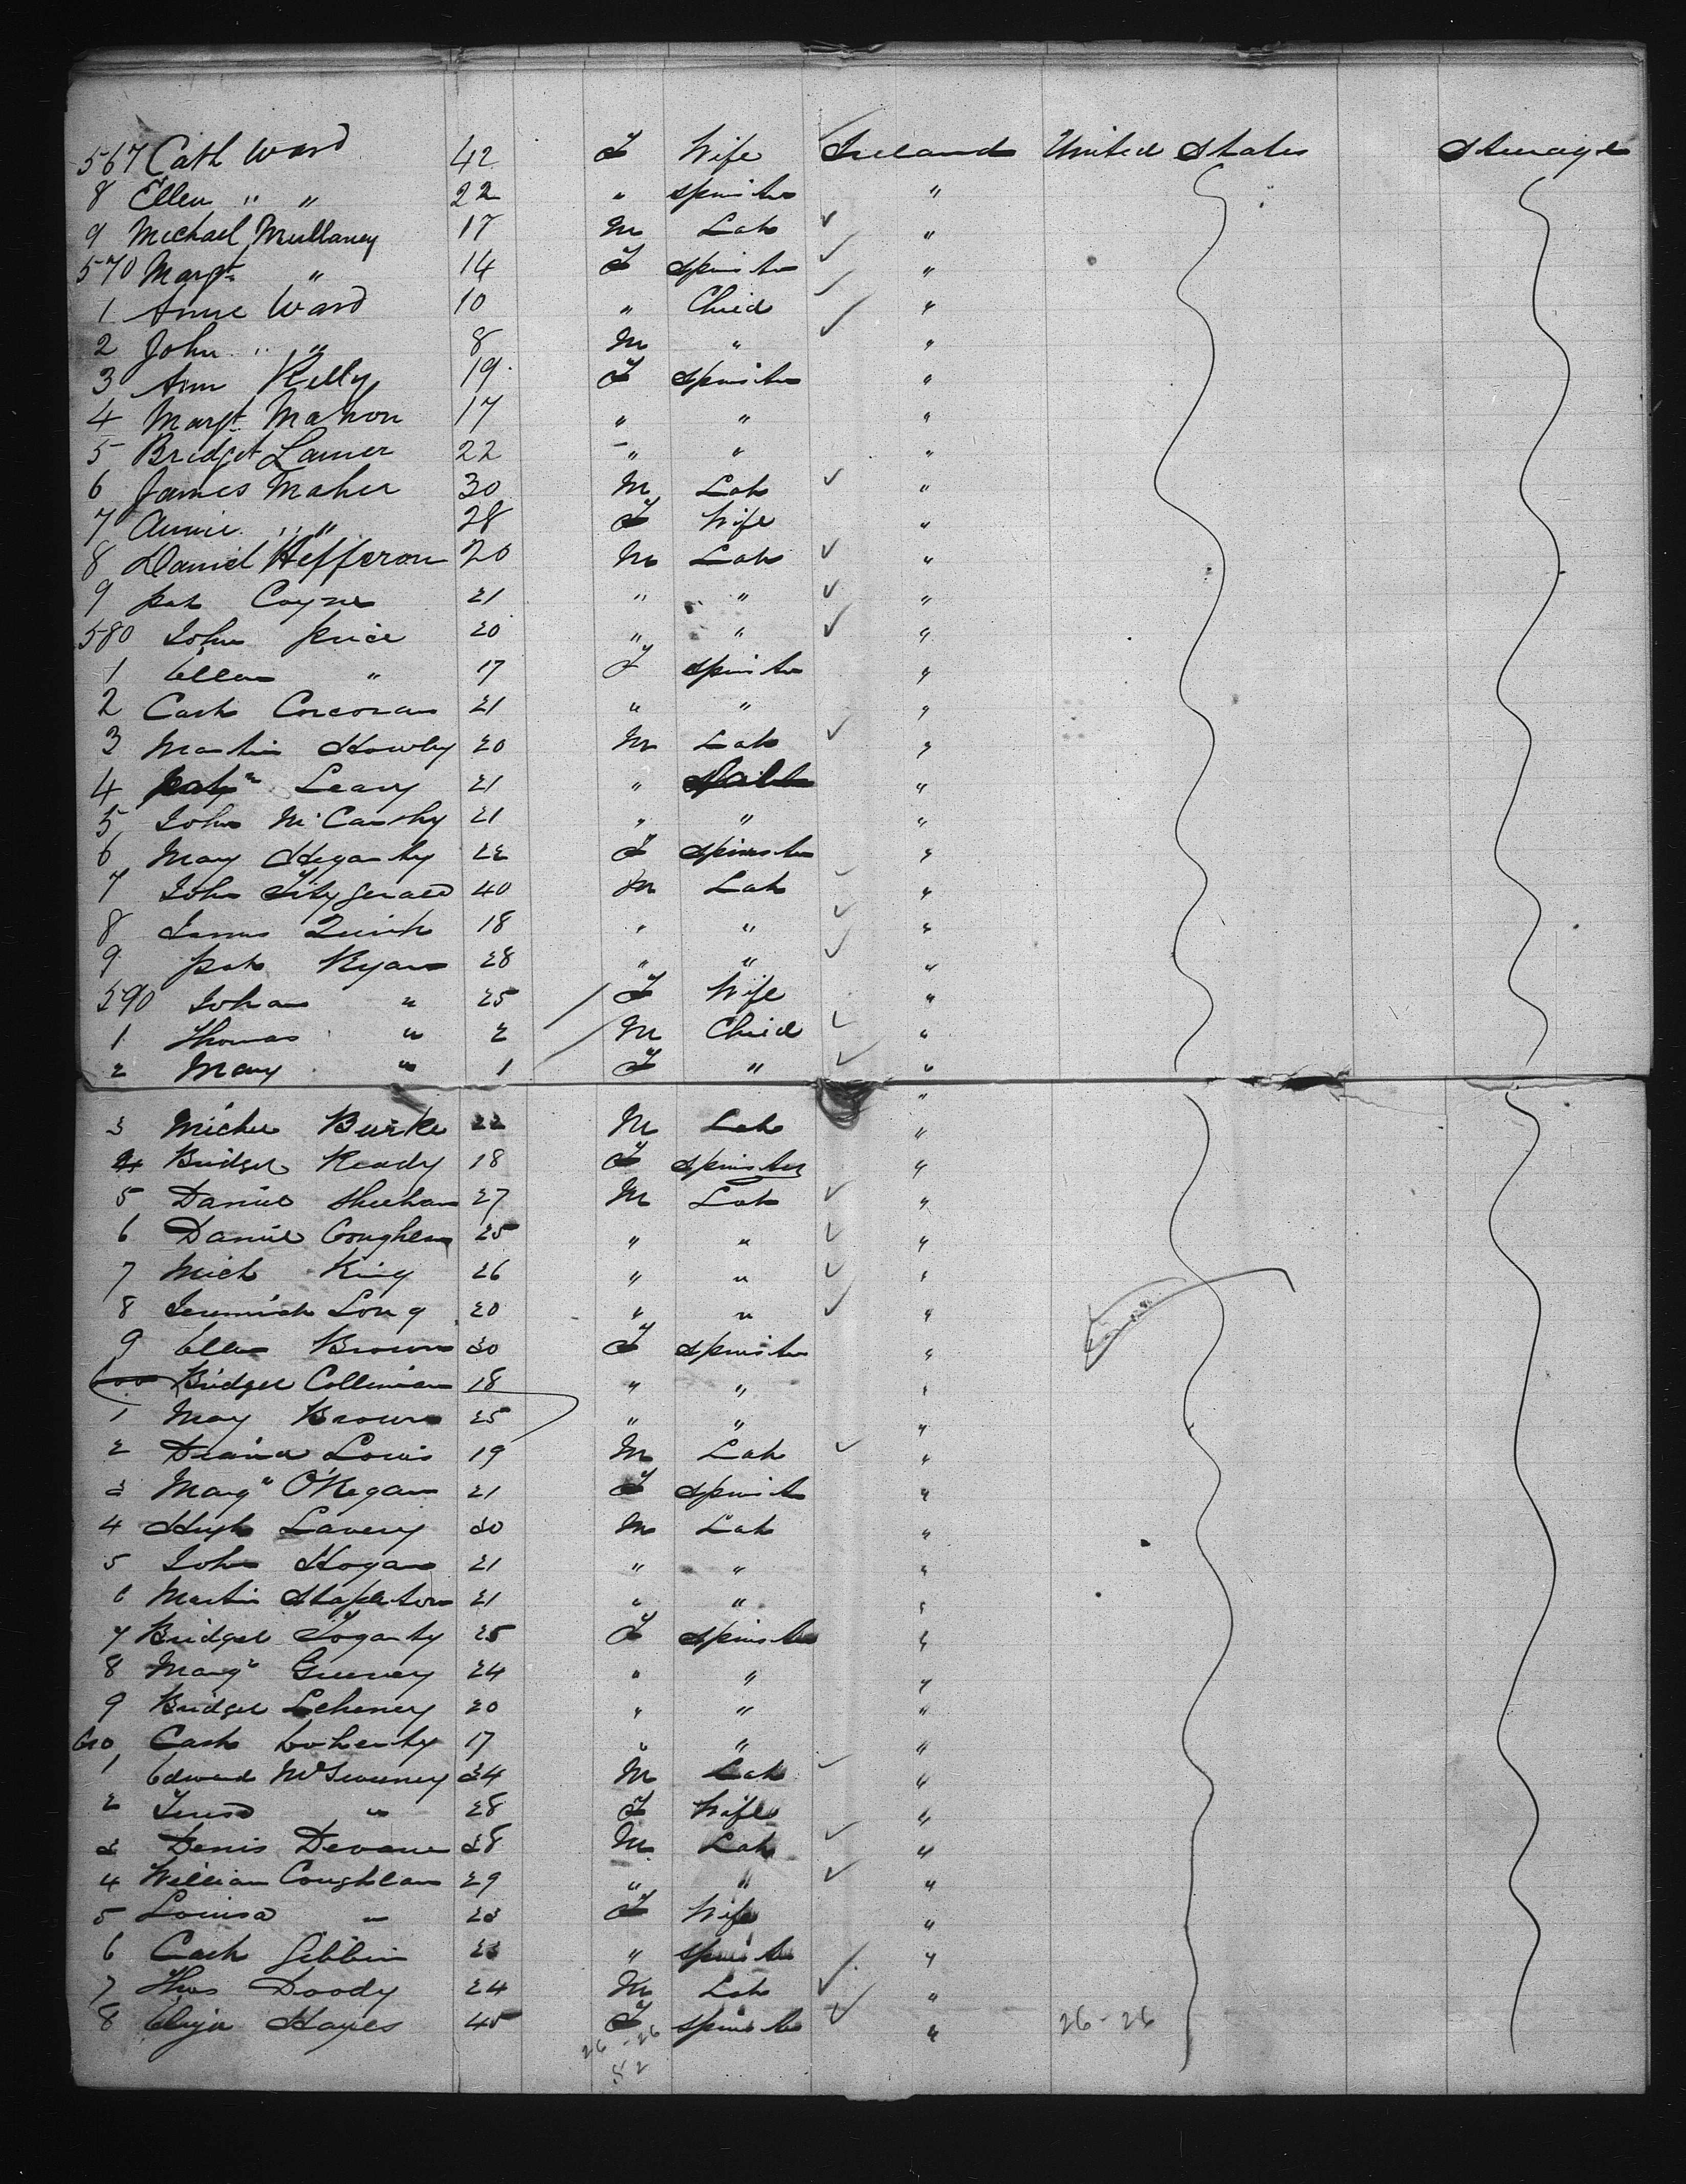 567 Cath Ward 42 F Wife Ireland United States Steerage
8 Ellen " " 22 " Spinster "
9 Michael Mullaney 17 M Lab "
570 Margt " 14 F Spinster "
1 Anne Ward 10 " Child "
2 John " " 8 M " "
3 Ann Kelly 19 F Spinster "
4 Margt Mahon 17 " " "
5 Bridget Larner 22 " " "
6 James Maher 30 M Lab "
7 Annie " " 28 F Wife "
8 Daniel Hefferon 20 M Lab "
9 Pat Coyne 21 " " "
580 John Price 20 " " "
1 Ellen " 17 F Spinster "
2 Cath Corcoran 21 " " "
3 Martin Howley 20 M Lab "
4 Leavy 21 " "
5 John McCarthy 21 " " "
6 Mary Hegarty 22 F Spinster "
7 John Fitzgerald 40 M Lab "
8 James Quirk 18 " " "
9 Pat Ryan 28 " " "
590 Johan " 25 F Wife "
1 Thomas " 2 M Child "
2 Mary " 1 F " "
"
3 Michl Burke 22 M Lab "
4 Bridget Ready 18 F Spinster "
5 Daniel Sheehan 27 M Lab "
6 Daniel Coughlan 25 " " "
7 Mich King 26 " " "
8 Jeremiah Long 20 " " "
9 Ellen Brown 30 F Spinster "
600 Bridget Collinan 18 " " "
1 May Brown 25 " " "
2 Louis 19 M Lab "
3 Margt O'Regan 21 F Spinster "
4 Hugh Lavery 30 M Lab "
5 John Hogan 21 " " "
6 Martin Stapleton 21 " " "
7 Bridget Fogarty 25 F Spinster "
8 Margt Greeney 24 " " "
9 Bridget Leheney 20 " " "
610 Cath Doherty 17 " " "
1 Edward McSweeney 34 M Lab "
2 " 28 F Wife "
3 Denis Devane 38 M Lab "
4 William Coughlan 29 " " "
5 Louisa " 23 F Wife "
6 Cath Gibbin 23 " Spinster "
7 Thos Doody 24 M Lab "
8 Eliza Hayes 45 F Spinster " 26-26
26-26
52